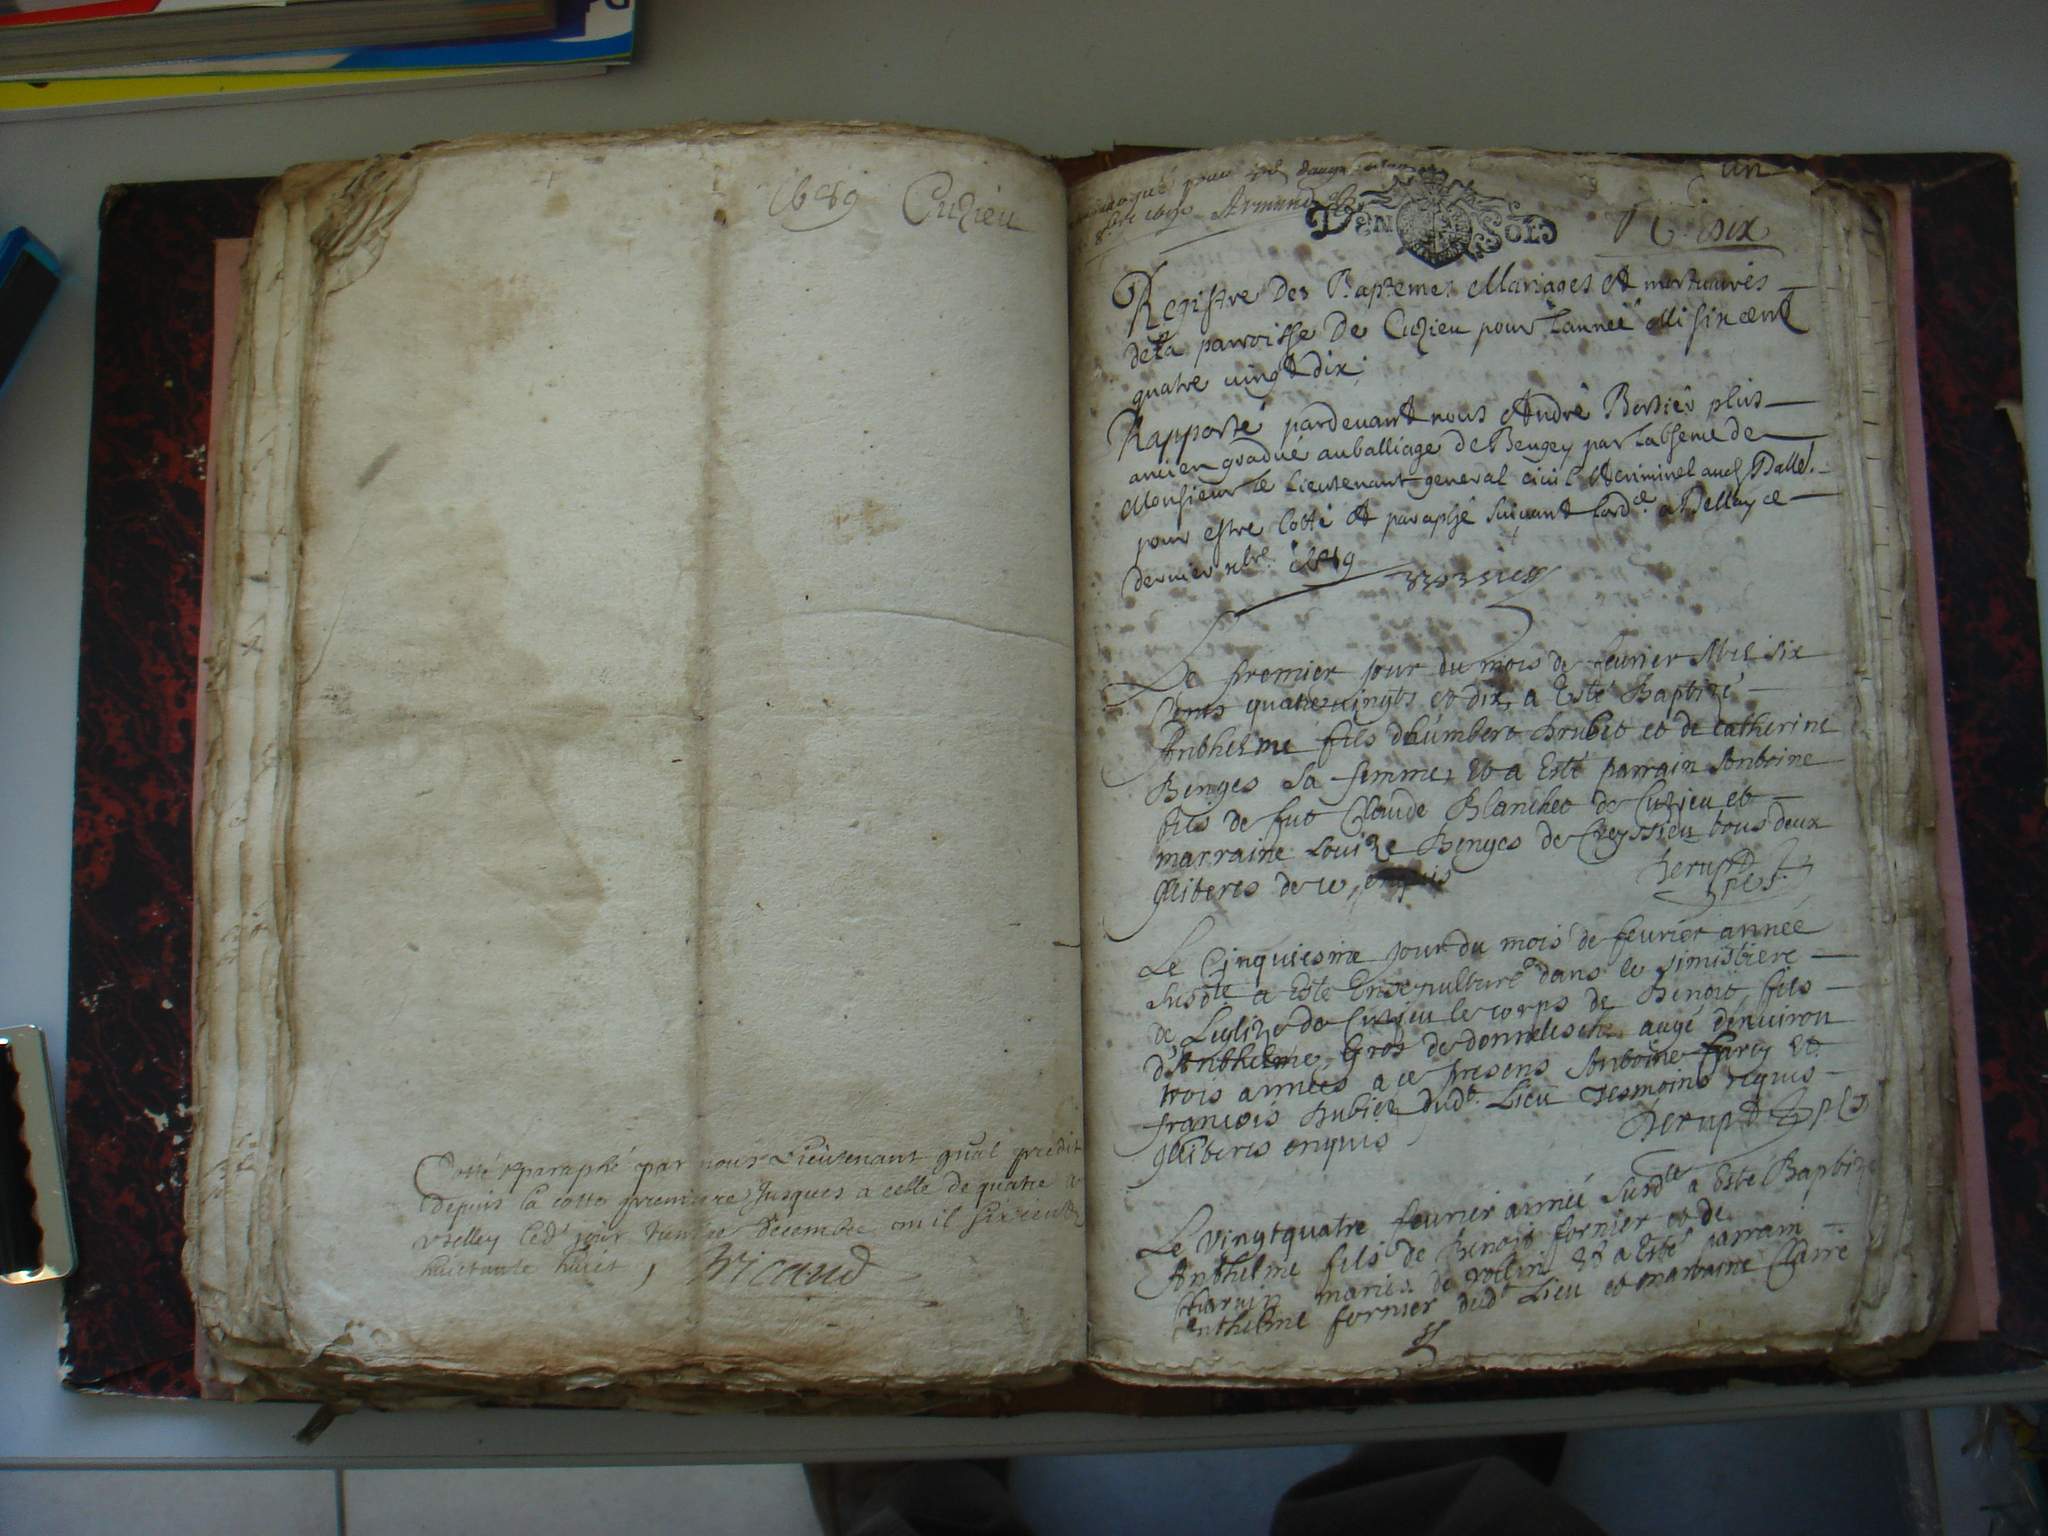 1689 Cuzieu
Cotté & paraphé par nous Lieutenant gñal prédit
depuis la cotte premiere Jusques a celle de quatre a
Belley led. jour trentre decembre mil six cent
huictante huict,
Bricaud
un
8bre 1690 Armand
DEN SOLS
six
Registre Des Baptemes Mariages et mortuaires
de la parroisse De Cuzieu pour l'année Mil six cent
quatre vingt dix;
Rapporté pardevant nous André Bossier plus
ancien gradué au balliage de Beugey par l'absence de
Monsieur le Lieutenant general civil et criminel aud. Balle.
pour estre Cotté et paraphé suivant l'ord.ce a Belley ce
dernier xbre 1689
Le premier jour du mois de feurier Mil six
Cents quatre vingts et dix a Esté Baptizé
Anthelme fils d'humbert brubet et de catherine
Benges sa femme, Et a Esté parrain Antoine
fils de fut Claude Blanchet de Cuzieu et
marraine Louize Benges de Creyssieu tous deux
Illiteres de ce enquis
Le Cinquiesme jour du mois de feurier année
susdte a Esté Ensepulturé dans le simistiere
de Leglize de Cuzieu le corps de Benoit fils
d'Anthelme Gros de donneloche augé denuiron
trois années a ce presens Antoine furey et
francois hubier dudt. Lieu Tesmoins requis
Illiteris enquis
Le vingtquatre feurier année susdte a Esté Baptize
Anthelme fils de Benoit fornier et de
marie de rollin Et a Esté parrain
anthelme fornier dudt. Lieu et marraine Claire